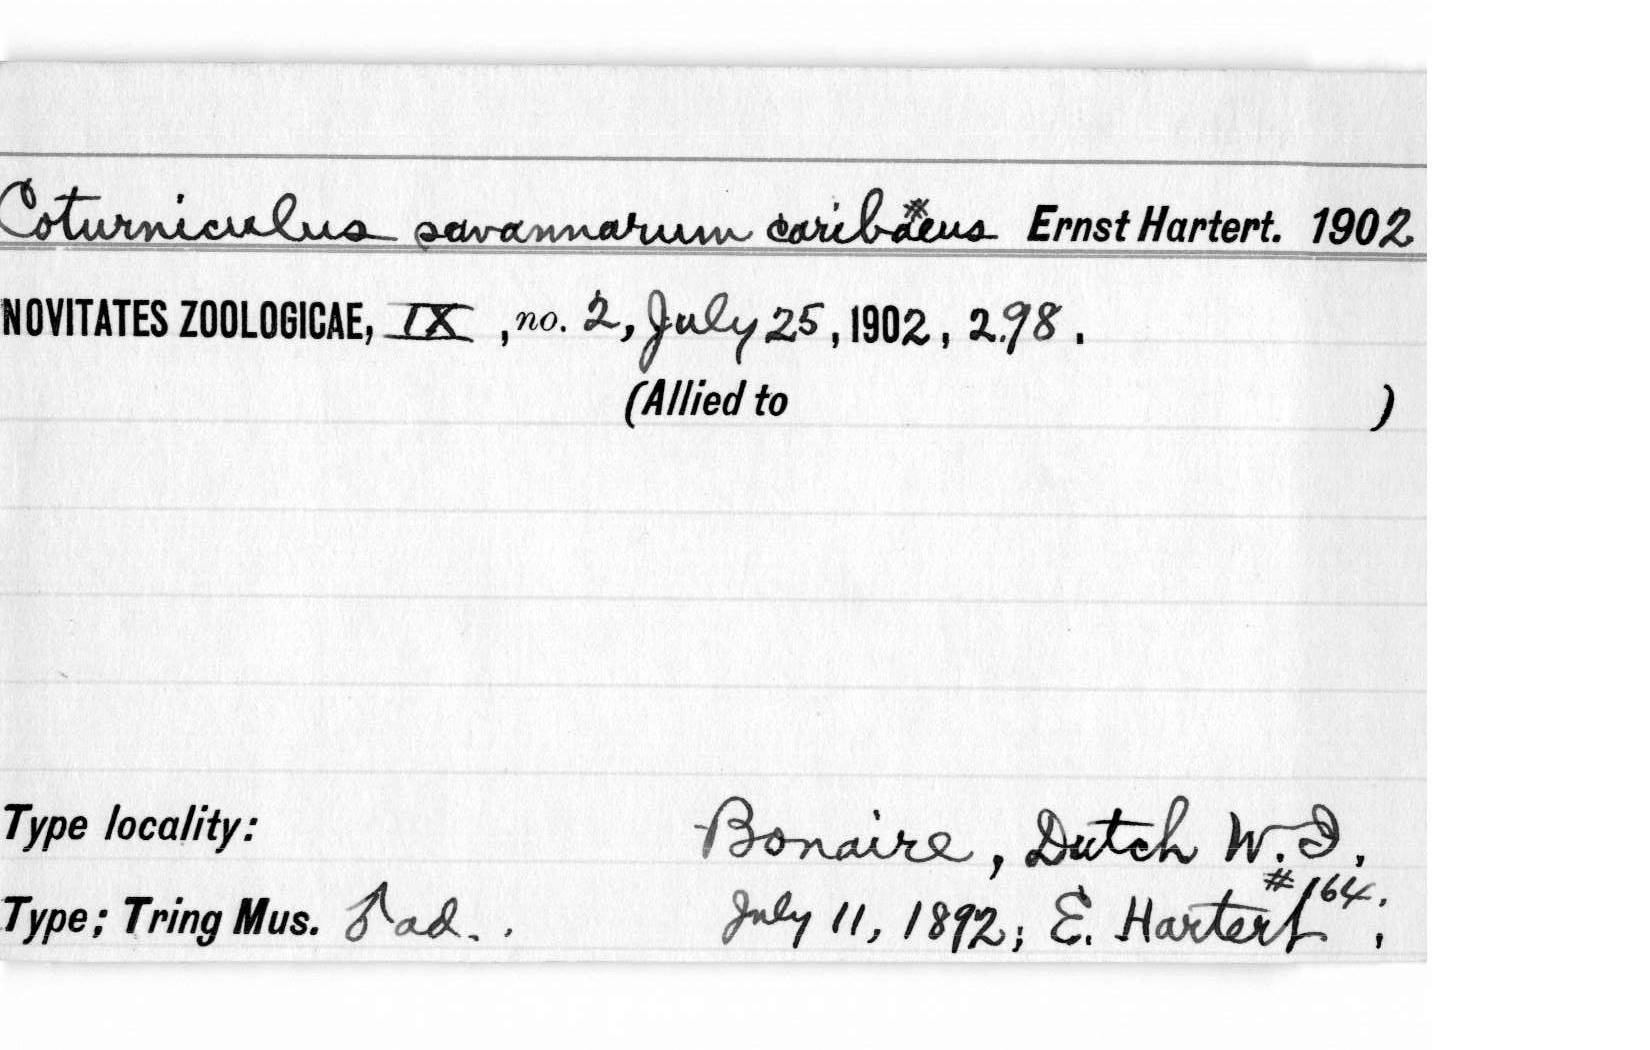 Coturniculus savannarum caribaeus Ernst Hartert. 1902
NOVITATES ZOOLOGICAE, IX, no. 2, July 25, 1902, 298.
(Allied to )
Type locality: Bonaire, Dutch W.I.,
#164.
Type; Tring Mus. ♂ ad.. July 11, 1892; E. Hartert,